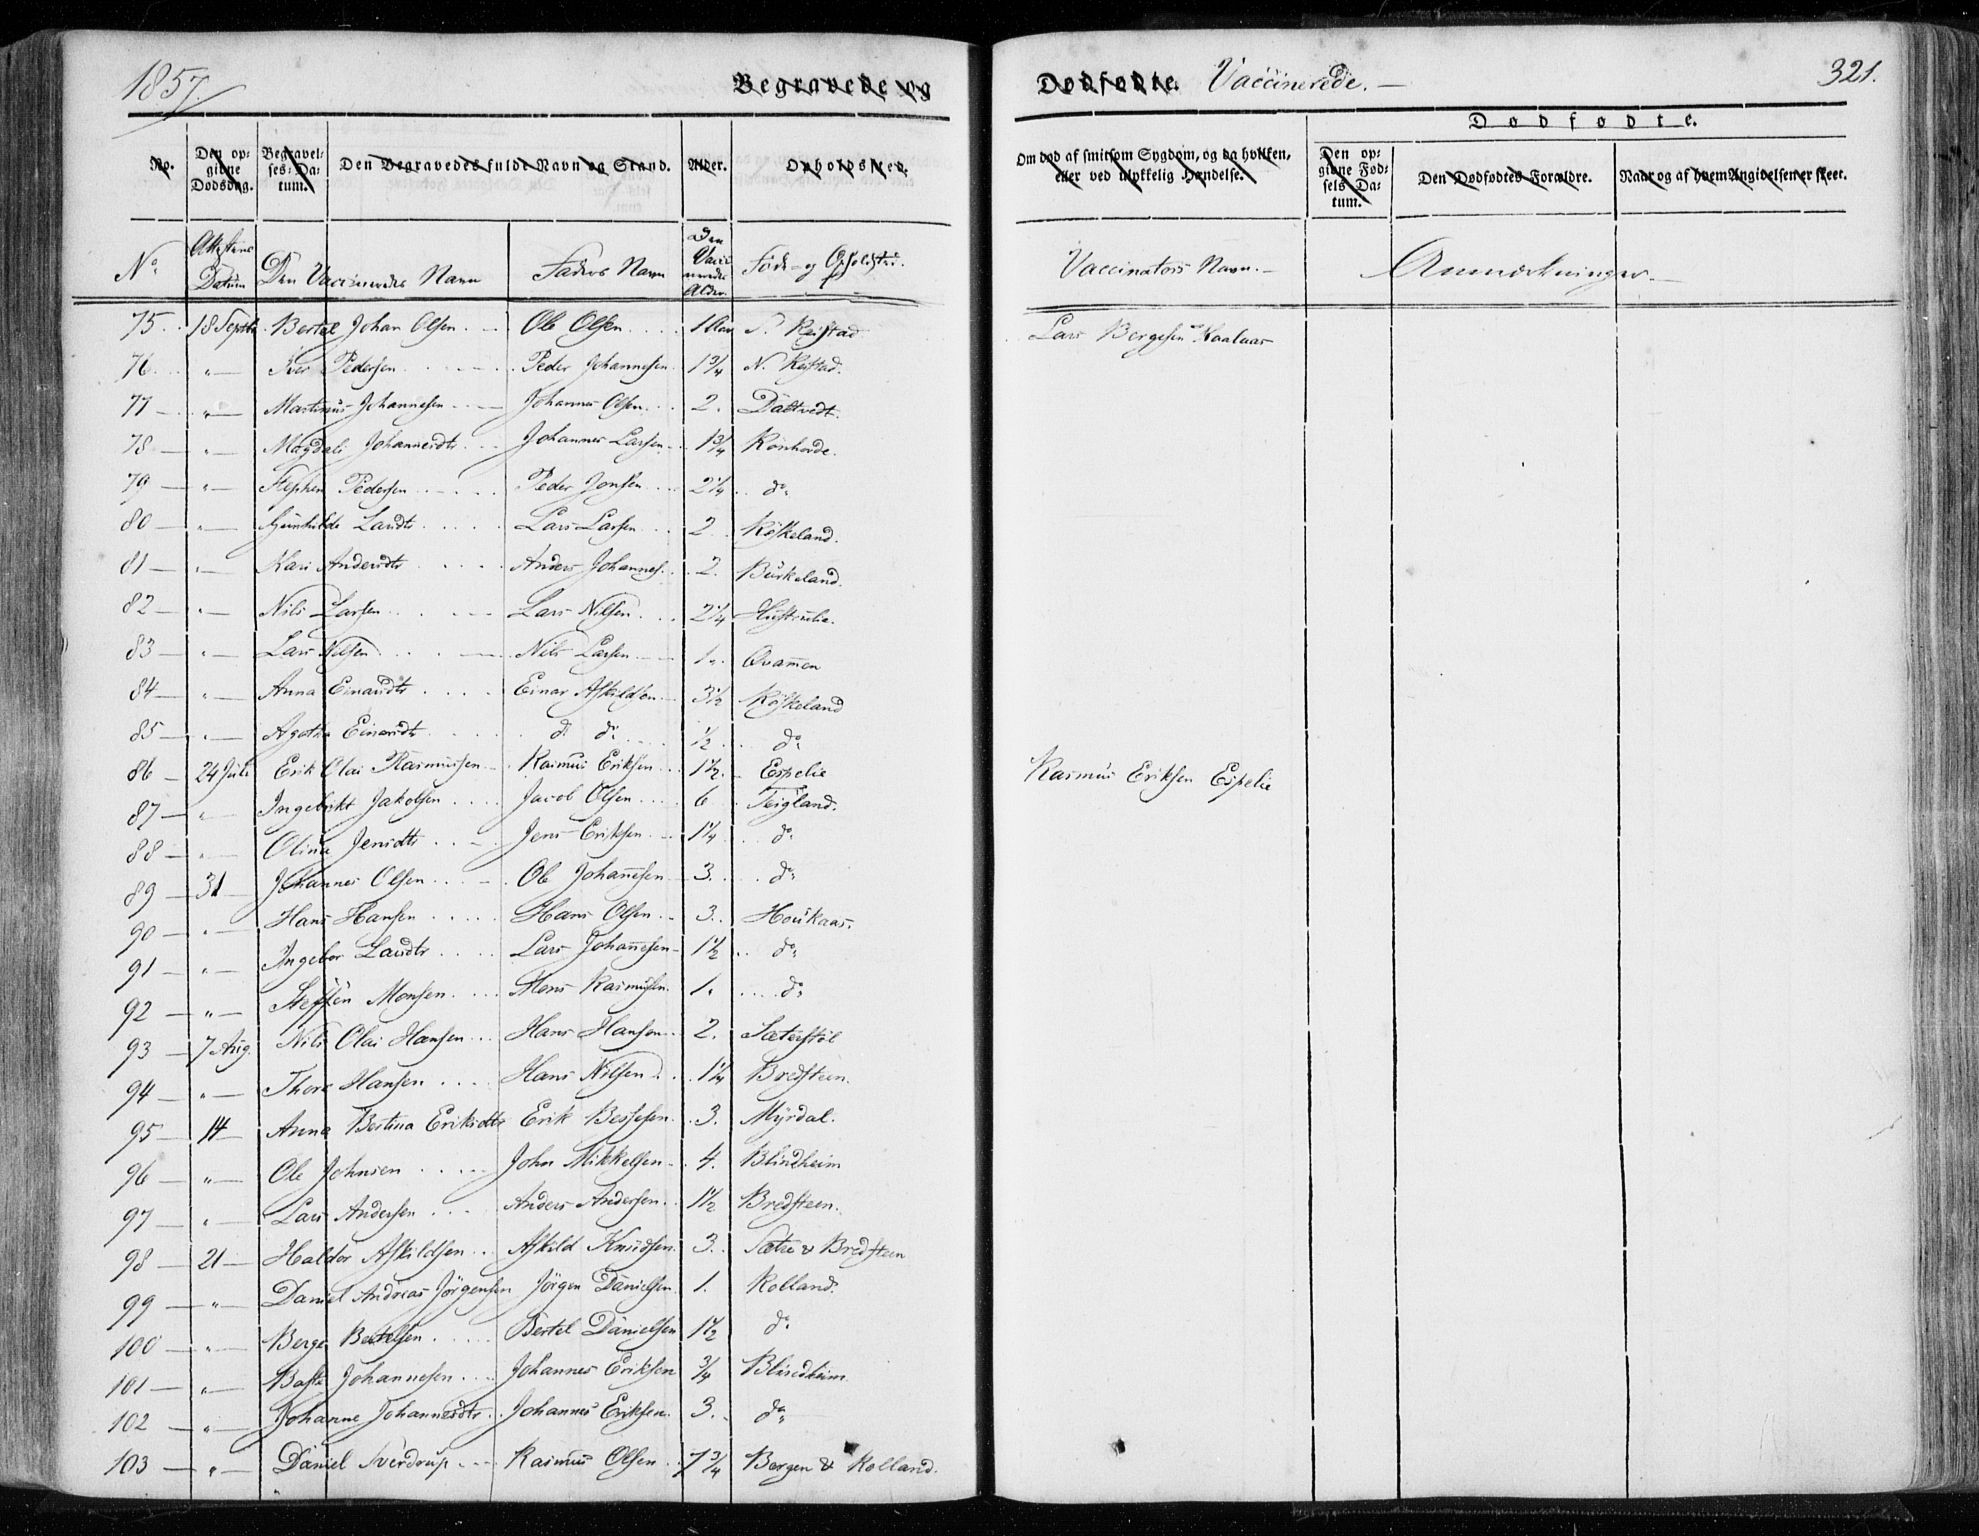 1857. Begravede og Dødfødte. Vaccinerede. — 321.
Dødfødte.
No. Den opgivne Dødsdag. Begravelses-Datum. Den Begravedes fulde Navn og Stand. Alder. Opholdssted. Om død af smitsom Sygdom, og da hvilken, eller ved ulykkelig Hændelse. Den opgivne Fødsels Datum. Den Dødfødtes Forældre. Naar og af hvem Angivelsen er skeet.
No. Attestens Datum Den Vaccineredes Navn Faders Navn Den Vaccineredes Alder. Føde- og Opholdsted. Vaccinators Navn. — Anmærkninger. —
75. 18 Septbr. Bertel Johan Olsen Ole Olsen 1 Aar N. Reistad Lars Bergesen Haalaas
76. " — Iver Pedersen Peder Johannesen 1 3/4 N. Reistad.
77 — " — Martinus Johannesen Johannes Olsen 2. Daltvedt.
78 — " — Magdali Johannesdtr Johannes Larsen 1 3/4 Rönhovde.
79 — " — Stephen Pedersen Peder Jonsen 2 1/4 do
80 — " — Gunhilde Larsdtr Lars Larsen 2 Röskeland.
81 — " — Kari Andersdtr Anders Johannes. 2. Burkeland.
82 — " — Nils Larsen Lars Nilsen 2 1/4
83 — " — Lars Nilsen Nils Larsen 1. Qvamen
84 — " — Anna Einarsdtr Einar Askildsen 3 1/2 Röskeland
85 — " — Agatha Einarsdtr do do 1/2 do
86 — 24 Juli Erik Olai Rasmussen Rasmus Eriksen 1 1/2. Espelie Rasmus Eriksen Espelie
87 — " Ingebrikt Jakobsen Jacob Olsen 6 Teigland.
88 — " — Olina Jensdtr Jens Eriksen 1 1/4 do
89 — 31 — Johannes Olsen Ole Johanesen 3. do
90 — " — Hans Hansen Hans Olsen 3. Houkaas.
91 — " — Ingebor Larsdtr Lars Johanesen 1 1/2 do
92 — " — Steffen Monsen Mons Rasmusen. 1. do
93 — 7 Aug. Nils Olai Hansen Hans Hansen 2. Sæterstöl
94 — " — Thore Hansen Hans Nilsen 1 1/4 Bredsteen.
95 — 14 — Anna Bertina Eriksdtr Erik Bessesen 3. Myrdal.
96 — " — Ole Johnsen John Mikkelsen 4. Blindheim
97 — " — Lars Andersen Anders Andersen 1 1/2 Bredsteen.
98 — 21 — Haldor Askildsen Askild Knudsen 3. Sætre & Bredsteen
99 — " — Daniel Andreas Jörgensen Jörgen Danielsen 1. Rolland.
100 — " — Berge Bertelsen Bertel Danielsen 1 1/2 do
101 — " — Johannesen Johannes Eriksen 3/4 Blindheim
102 — " — Johanne Johannesdtr Johannes Eriksen 3. do
103 — " — Daniel Sverdrup Rasmus Olsen 7 3/4 Bergen & Rolland.